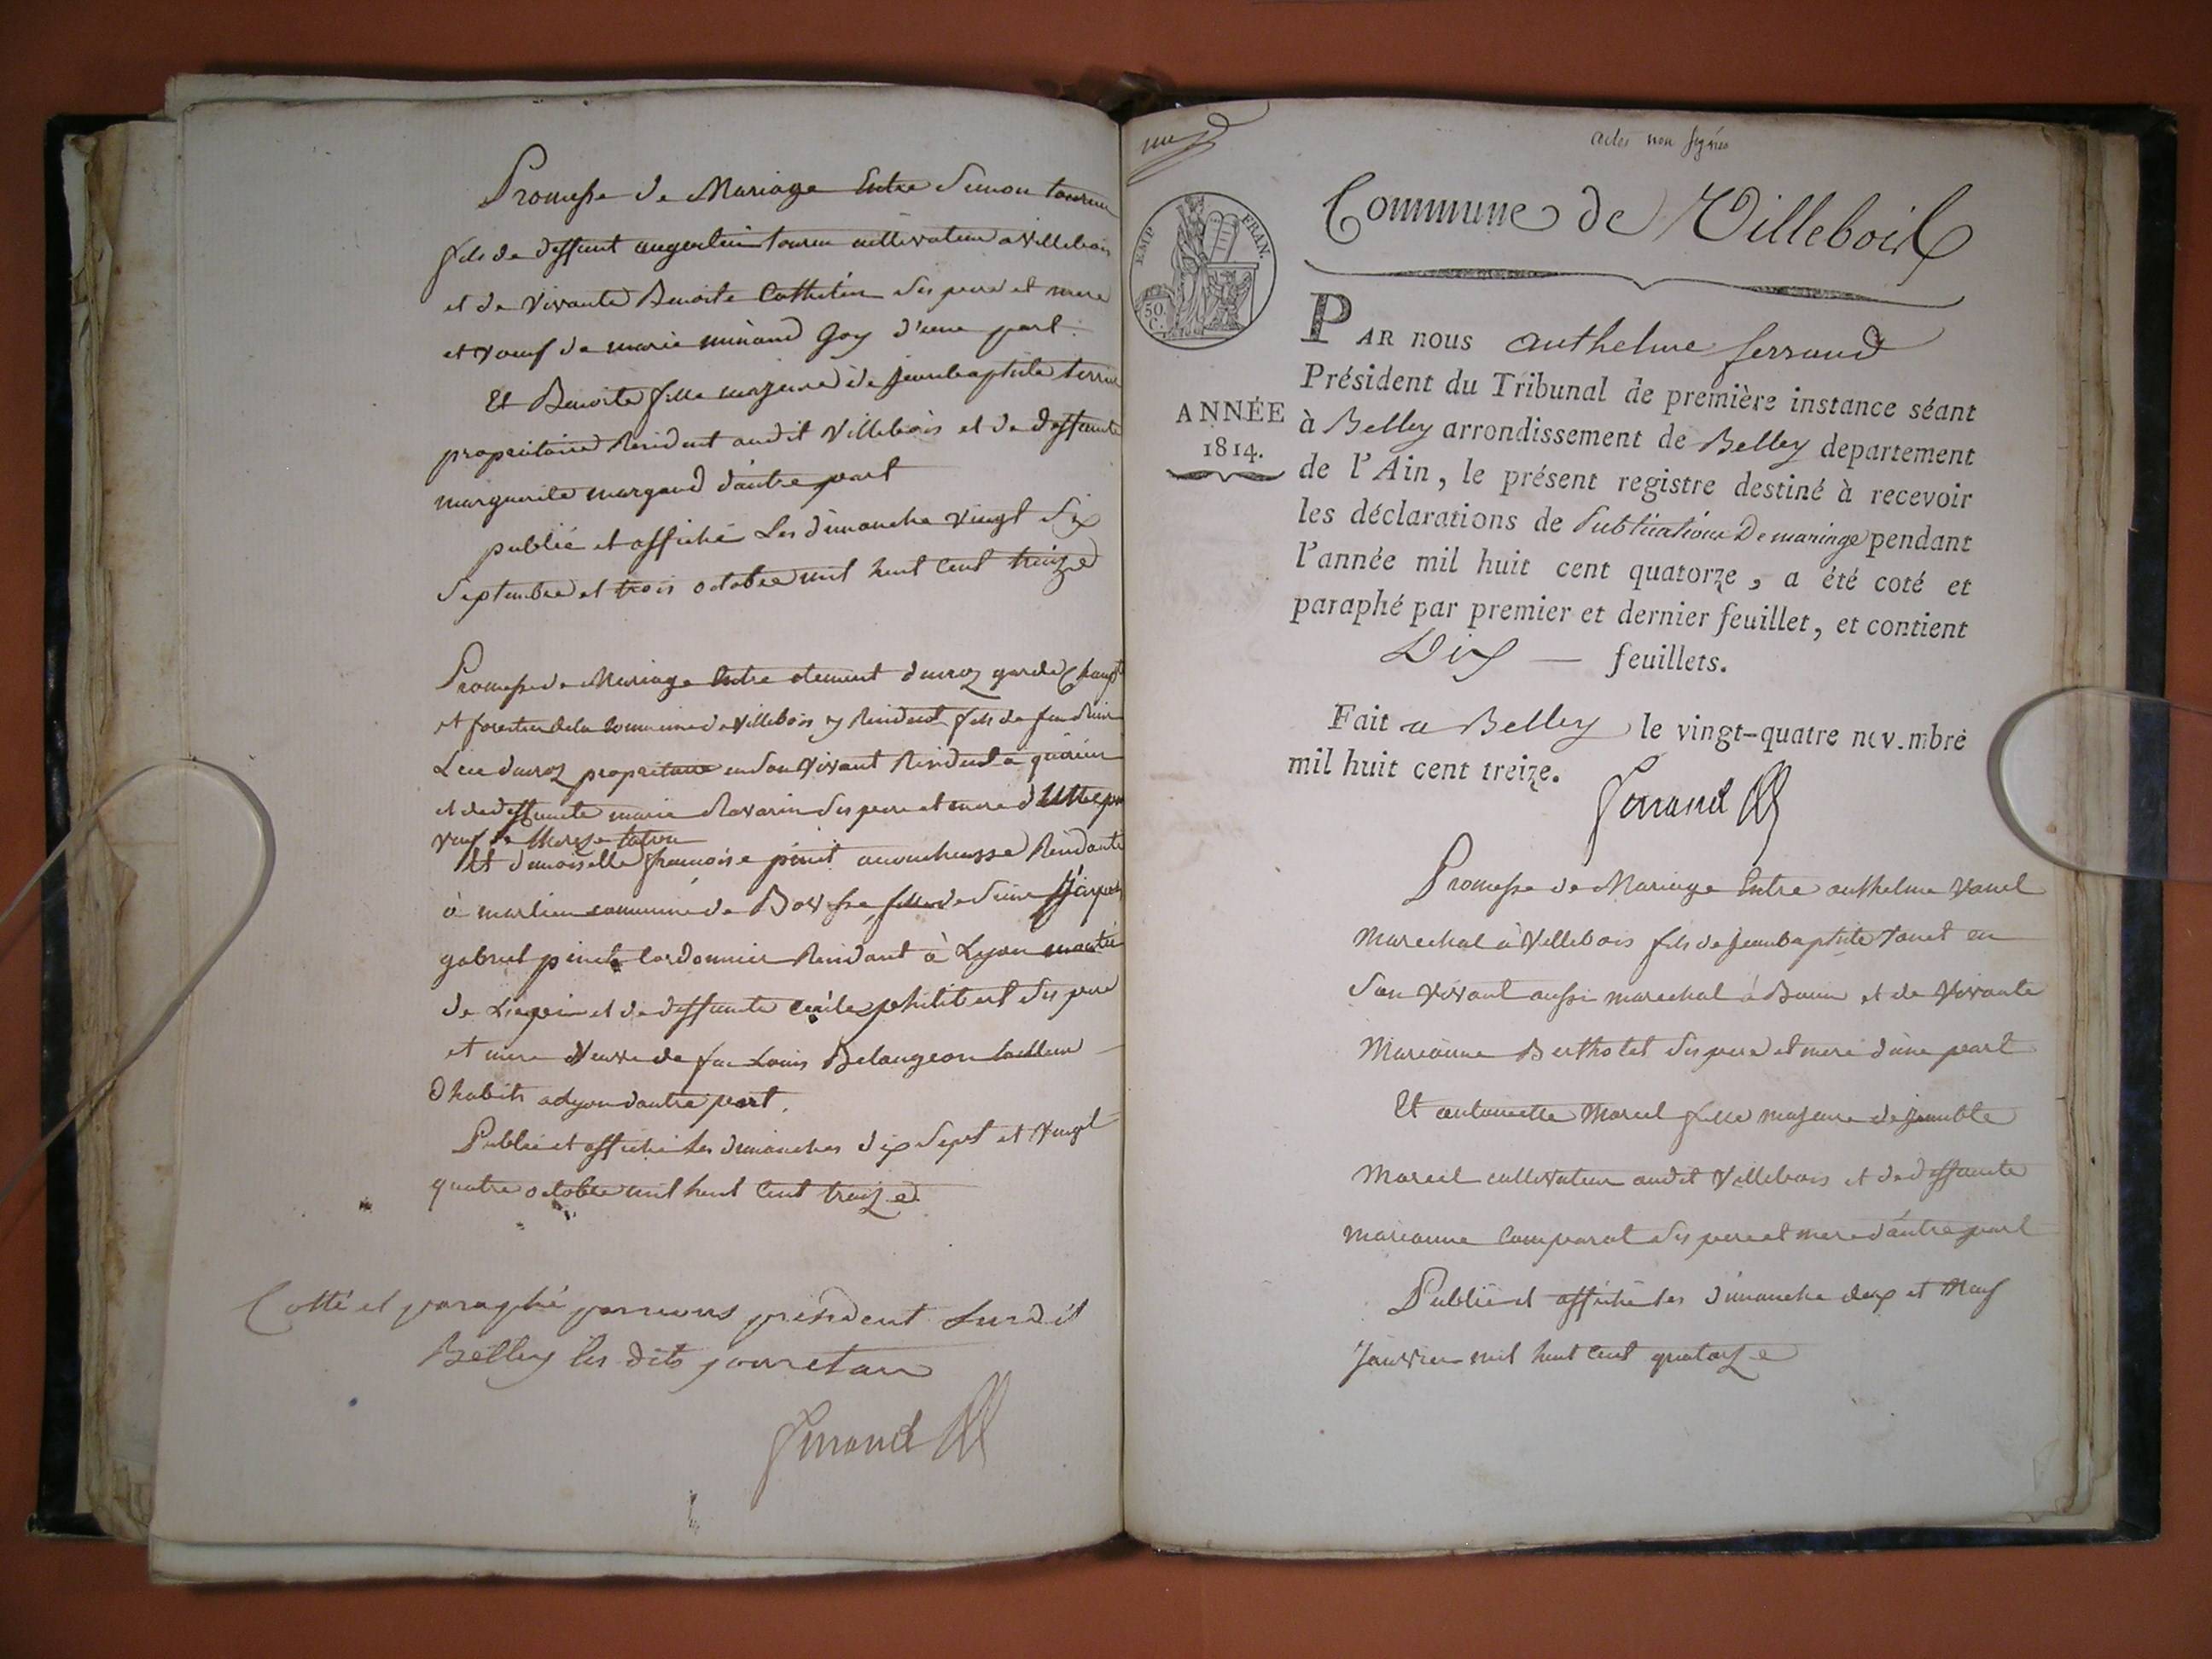 Promesse de Mariage Entre Simon
fils de deffunt augustin cultivateur a villebois
et de vivante Benoite Cathelin ses pere et mere
et veuf de marie minand Goy d'une part.
Et Benoite fille majeure de jeanbaptiste
propriétaire Résident audit Villebois et de deffunte
marguerite margand d'autre part
publié et affiché Les dimanche vingt Six
Septembre et trois octobre mil huit Cent treize
Promesse de Mariage Entre garde
et forestier de la commune de villebois y Résident fils de feu
Luc propriétaire en son vivant Résident a
et de deffunte marie Ravarin ses pere et mere
veuf de
Et demoiselle françoise accoucheusse Résidante
à marlieu commune de fille de
gabriel cordonnier Résidant à Lyon
de et de deffunte philibert ses pere
et mere veuve de feu Louis Belangeon tailleur
d'habits a Lyon d'autre part.
Publié et affiché les dimanches dix Sept et vingt
quatre octobre mil huit Cent treize
Cotté et paraphé par nous président Susdit
Belley les dits jour et an
Ferrand
actes non signés
Commune de Villebois
EMP FRAN.
50. C.
ANNÉE
1814.
PAR nous anthelme ferrand
Président du Tribunal de première instance séant
à Belley arrondissement de Belley departement
de l'Ain, le présent registre destiné à recevoir
les déclarations de Publications De mariage pendant
l'année mil huit cent quatorze, a été coté et
paraphé par premier et dernier feuillet, et contient
Dix — feuillets.
Fait a Belley le vingt-quatre nov.mbre
mil huit cent treize.
Ferrand
Promesse de Mariage Entre anthelme
Marechal à Villebois fils de jeanbaptiste en
Son vivant aussi marechal à et de vivante
Marianne Bertholet ses pere et mere d'une part
Et antoinette Marcel fille majeure de
Marcel cultivateur audit Villebois et de deffunte
marianne Comparat ses pere et mere d'autre part
Publié et affiché les dimanche deux et Neuf
Janvier mil huit Cent quatorze